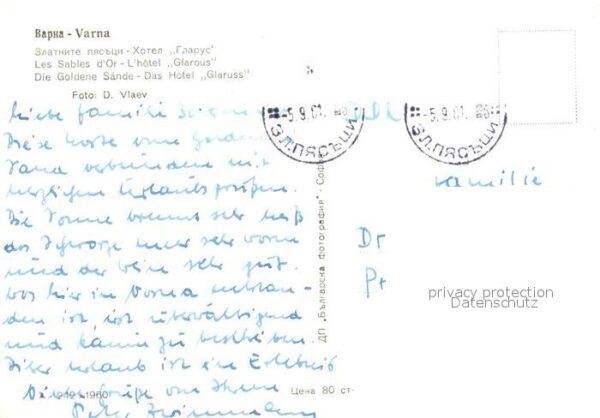 Варна - Varna
Златните пясъци - Хотел „Гларус"
Les Sables d'Or - L'hôtel „Glarous"
Die Goldene Sände - Das Hotel „Glaruss"
Foto: D. Vlaev
Liebe Familie
Diese Karte vom Golden
Sand verbinden mit
herzlichen Urlaubsgrüßen.
Die Sonne brennt sehr heiß
das Schwarze Meer sehr warm
und der Wein sehr gut.
Was hier in Varna entstan-
den ist, ist überwältigend
und kaum zu beschreiben.
Dieser Urlaub ist ein Erlebnis
Liebe Grüße von Ihrem
Peter
1960
Цена 80 ст.
ДП „Българска фотография" - София
-5.9.61.
ЗЛ.ПЯСЪЦИ
-5.9.61.
ЗЛ.ПЯСЪЦИ
DDR
Familie
Dr
Pr
privacy protection
Datenschutz